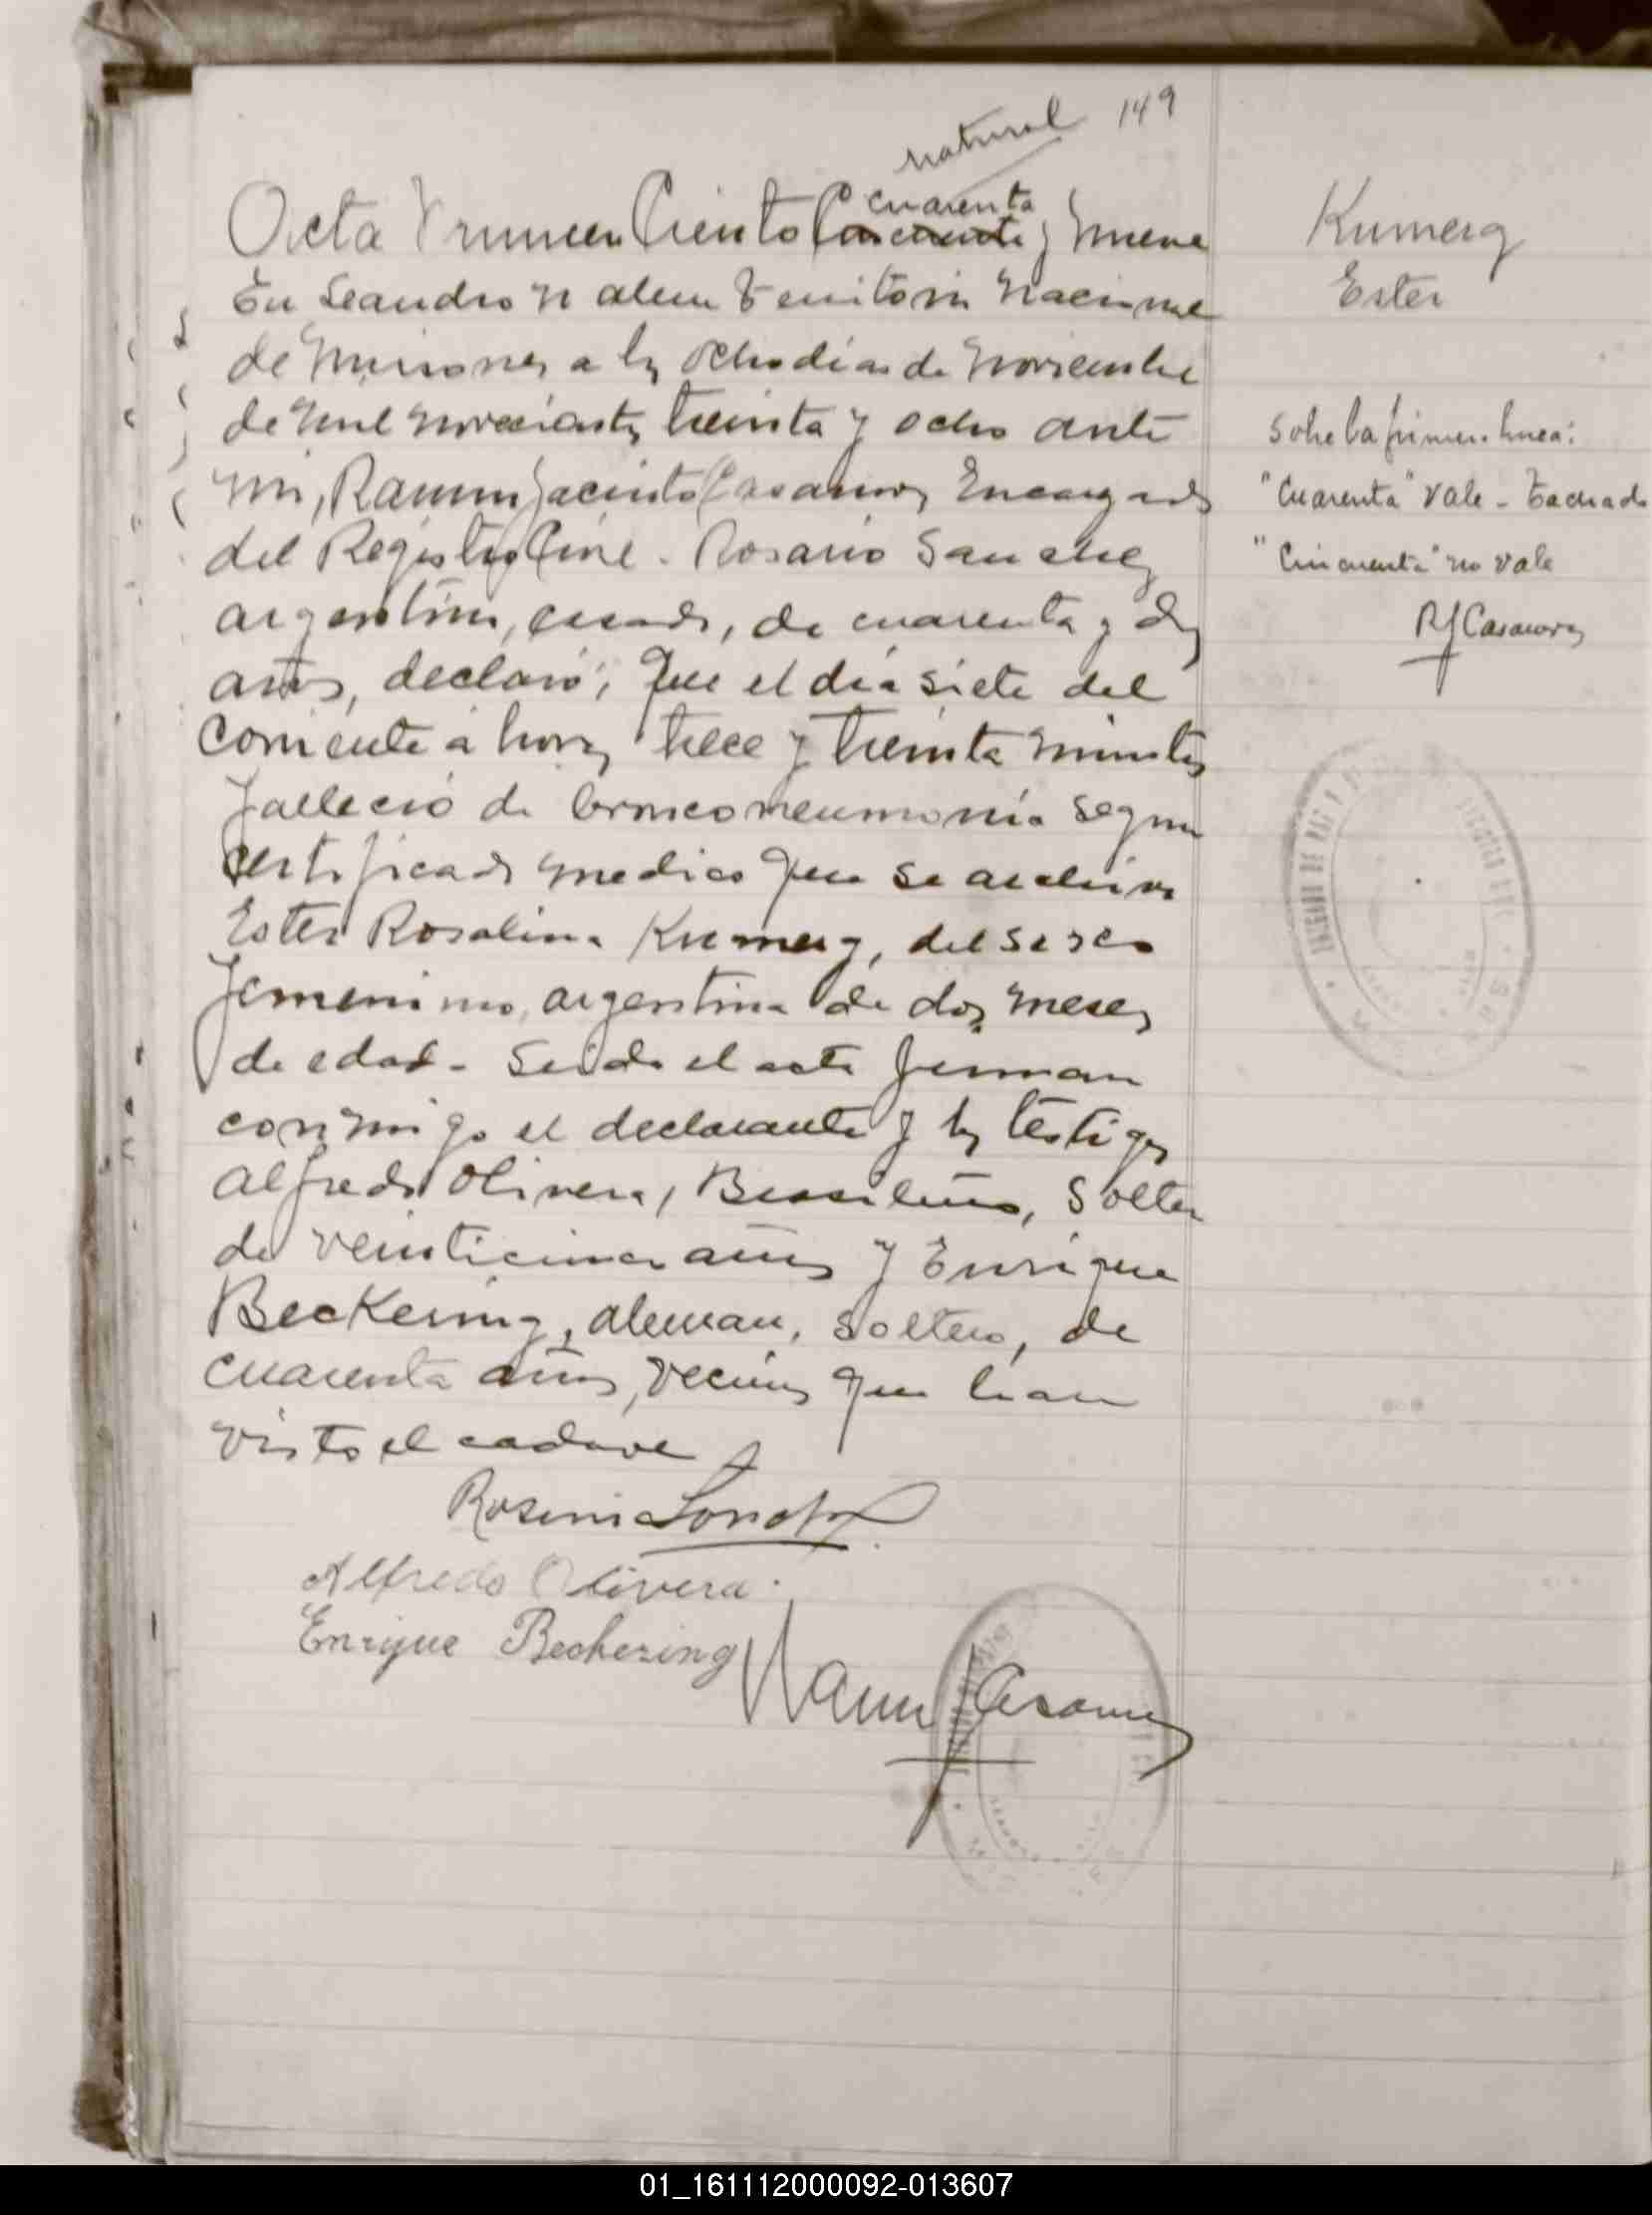 149
natural
cuarenta
Acta Numero Ciento Cincuenta y nueve
En Leandro N Alem Territorio Nacional
de Misiones a los ocho dias de Noviembre
de mil novecientos treinta y ocho ante
mi, Ramon Jacinto Casanova Encargado
del Registro Civil. Rosario Sanchez
argentino, casado, de cuarenta y dos
años, declaró; Que el día siete del
corriente a horas trece y treinta minutos
falleció de bronconeumonía segun
certificado medico que se archiva
Ester Rosalina Kumerg, del sexo
femenino, argentina de dos meses
de edad. Leida el acta firman
conmigo el declarante y los testigos
Alfredo Olivera, Brasileño, Soltero
de veinticinco años y Enrique
Beckering, aleman, soltero, de
cuarenta años, vecinos que han
visto el cadaver
Alfredo Olivera.
Enrique Beckering
Ramon J Casanova
Kumerg
Ester
Sobre la primera linea:
"Cuarenta" vale - Tachado
"Cincuenta" no vale
RJCasanova
01_161112000092-013607